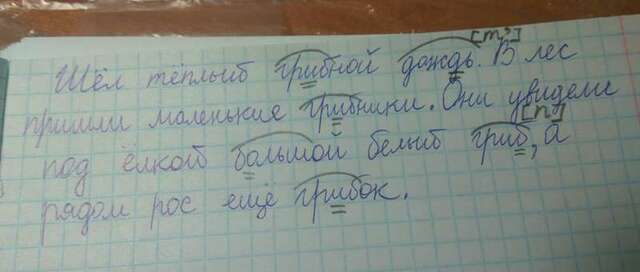 Шёл тёплый грибной дождь. [т'] В лес
пришли маленькие грибники. Они увидели
под ёлкой большой белый гриб, [п] а
рядом рос ещё грибок.